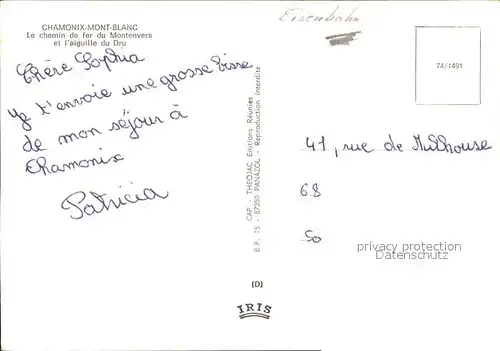 CHAMONIX-MONT-BLANC
Le chemin de fer du Montenvers
et l'aiguille du Dru
Eisenbahn
74/1491
Chère Sophia
Je t'envoie une grosse bise
de mon séjour à
Chamonix
Patricia
CAP - THEOJAC, Editions Réunies
B.P. 15 - 87350 PANAZOL - Reproduction interdite
41, rue de Mulhouse
68
So
privacy protection
oldthing.de
(D)
IRIS